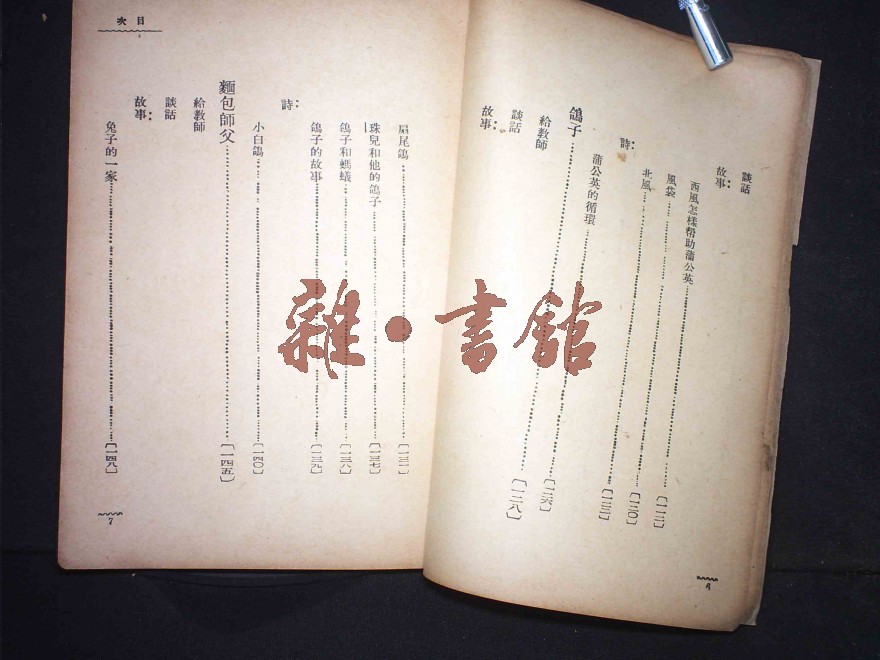 談話
故事：
西風怎樣幫助蒲公英
風袋
北風
詩：
蒲公英的循環……〔一二六〕
鴿子……〔一二八〕
給教師
談話
故事：
目次
扇尾鴿……〔一三一〕
珠兒和他的鴿子……〔一三七〕
鴿子和螞蟻……〔一三八〕
鴿子的故事……〔一三九〕
詩：
小白鴿……〔一四〇〕
麵包師父……〔一四五〕
給教師
談話
故事：
兔子的一家……〔一四八〕
7
雜·書館